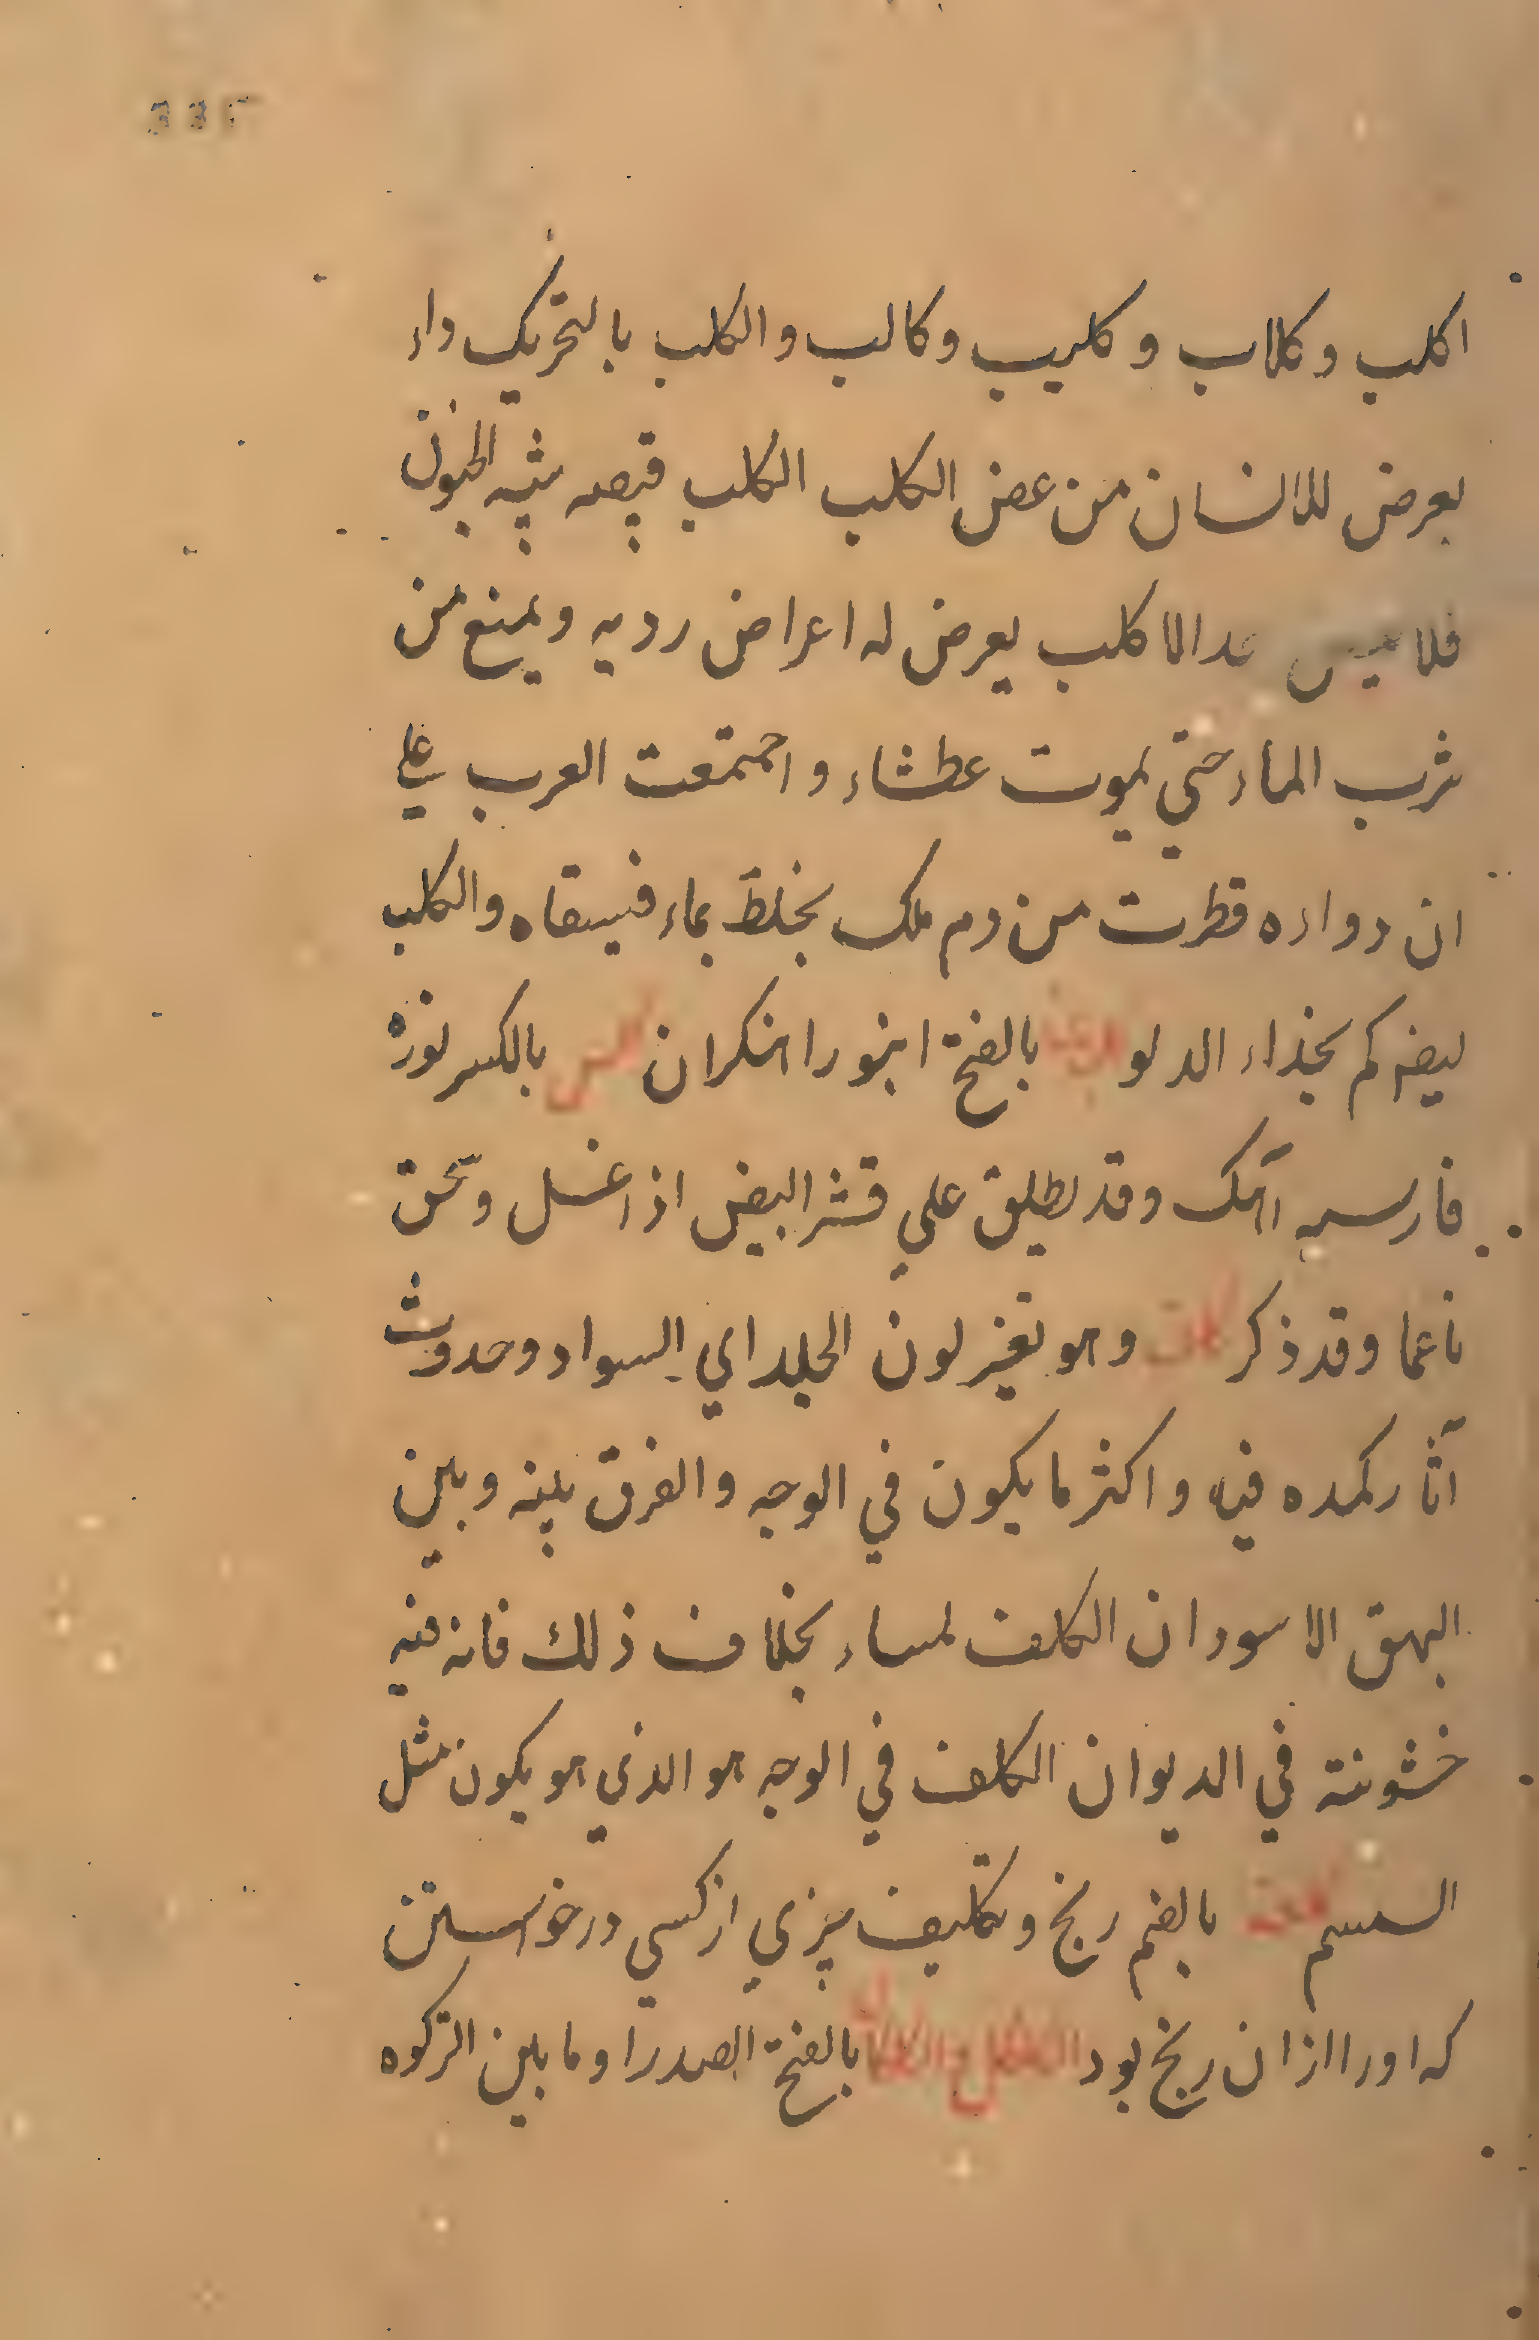 اكلب وكلاب وكليب وكالب والكلب بالتحريك داء
يعرض للانسان من عض الكلب الكلب فيصه شبه الجنون
فلا الا كلب يعرض له اعراض رديه ويمنع من
شرب الماء حتي يموت عطشاء واجمتمعت العرب علي
ان دواءه قطرت من دم ملك يخلط بماء فيسقاه والكلب
بخذاء الدلو بالفتح را انكران بالكسر نوزه
فارسيه آهك وقد يطلق علي قشر البيض اذا غسل وسحق
ناعما وقد ذكر كلف وهو تغير لون الجلد اي السواد وحدوث
آثار كمده فيه واكثر ما يكون في الوجه والفرق بينه وبين
البهق الاسود ان الكلف لمساء بخلاف ذلك فانه فيه
خشونته في الديوان الكلف في الوجه هو الذي هو يكون مثل
السمسم كلفة بالضم رنج وتكليف چيزي از كسي درخواستن
كه اورا ازان رنج بود بالفتح الصدرا وما بين الترکوه